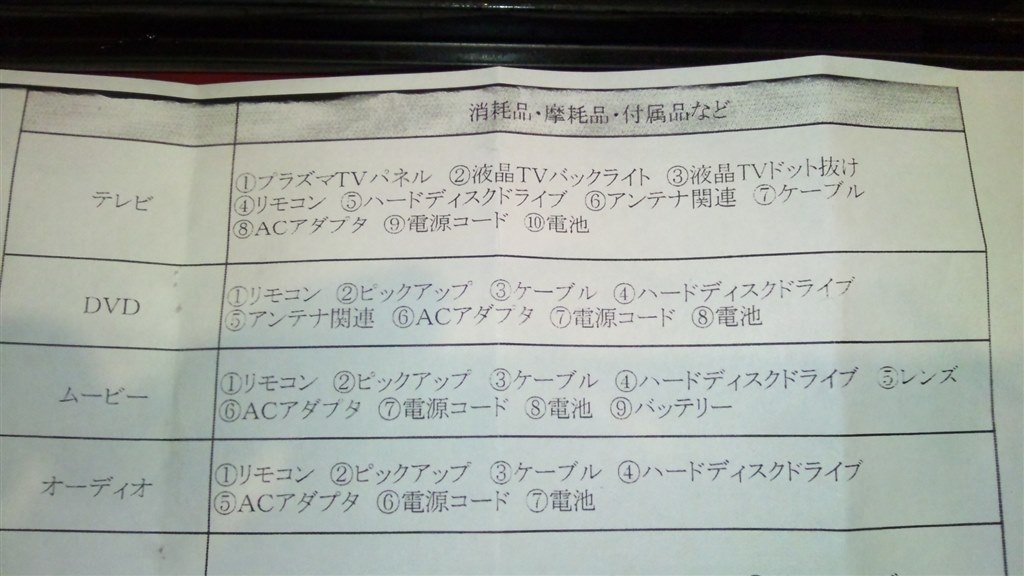 消耗品・摩耗品・付属品など
テレビ
①プラズマTVパネル ②液晶TVバックライト ③液晶TVドット抜け
④リモコン ⑤ハードディスクドライブ ⑥アンテナ関連 ⑦ケーブル
⑧ACアダプタ ⑨電源コード ⑩電池
DVD
①リモコン ②ピックアップ ③ケーブル ④ハードディスクドライブ
⑤アンテナ関連 ⑥ACアダプタ ⑦電源コード ⑧電池
ムービー
①リモコン ②ピックアップ ③ケーブル ④ハードディスクドライブ ⑤レンズ
⑥ACアダプタ ⑦電源コード ⑧電池 ⑨バッテリー
オーディオ
①リモコン ②ピックアップ ③ケーブル ④ハードディスクドライブ
⑤ACアダプタ ⑥電源コード ⑦電池